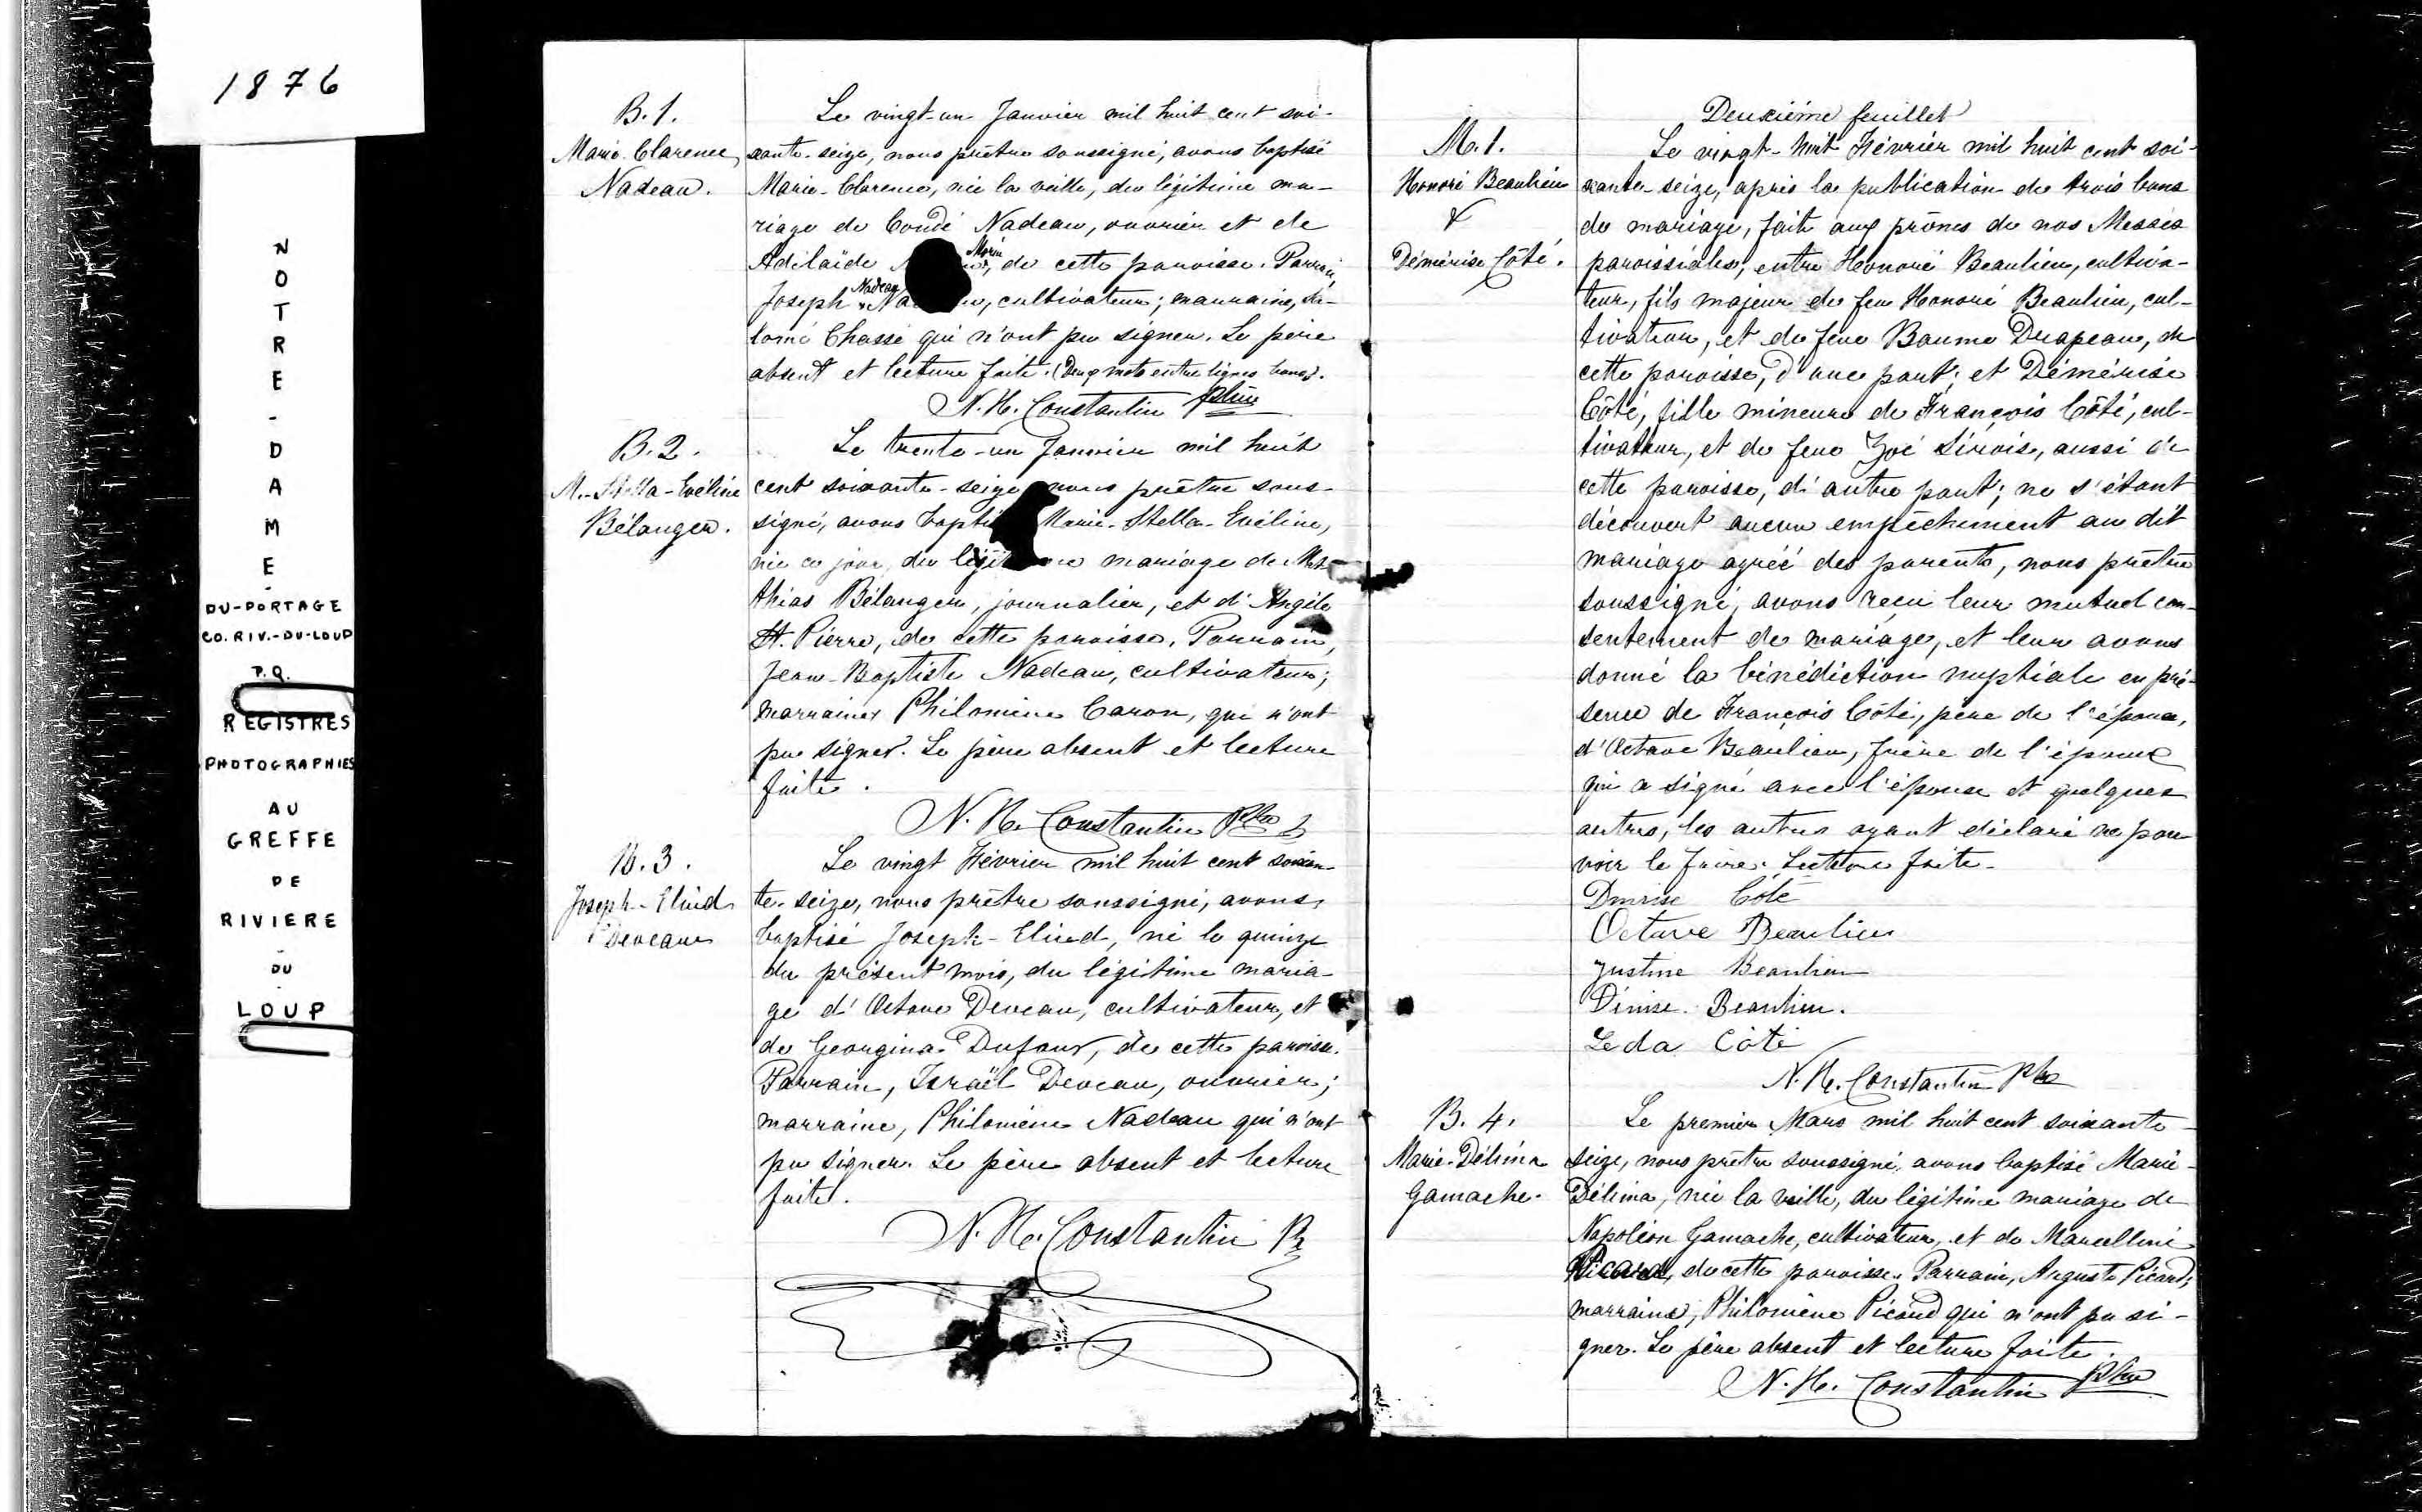 1876
NOTRE-DAME-
DU-PORTAGE
CO. RIV.-DU-LOUP
P.Q.
REGISTRES
PHOTOGRAPHIES
AU
GREFFE
DE
RIVIERE
-
DU
-
LOUP
B.1.
Marie-Clarence
Nadeau.
Le vingt-un Janvier mil huit cent soi-
xante-seize, nous prêtre soussigné, avons baptisé
Marie-Clarence, née la veille, du légitime ma-
riage de Condé Nadeau, ouvrier et de
Adélaïde Morin, de cette paroisse. Parrain,
Joseph Nadeau, cultivateur; marraine, Sa-
lomé Chassé qui n'ont pu signer. Le père
absent et lecture faite. (Deux mots entre lignes bons).
N. H. Constantin Ptre
B.2.
M.-Stella-Evéline
Bélanger.
Le trente-un Janvier mil huit
cent soixante-seize nous prêtre sous-
signé, avons baptisé Marie-Stella-Evéline,
née ce jour, du légitime mariage de Mat-
thias Bélanger, journalier, et d'Angèle
St. Pierre, de cette paroisse. Parrain,
Jean-Baptiste Nadeau, cultivateur;
marraine, Philomène Caron, qui n'ont
pu signer. Le père absent et lecture
faite.
N. H. Constantin Ptre
B.3.
Joseph-Eliud
Deveau
Le vingt Février mil huit cent soixan-
te-seize, nous prêtre soussigné, avons
baptisé Joseph-Eliud, né le quinze
du présent mois, du légitime maria-
ge d'Octave Deveau, cultivateur, et
de Georgina Dufour, de cette paroisse.
Parrain, Israël Deveau, ouvrier;
marraine, Philomène Nadeau qui n'ont
pu signer. Le père absent et lecture
faite.
N. H. Constantin Ptre
Deuxième feuillet
M.1.
Honoré Beaulieu
&
Démérise Côté.
Le vingt-huit Février mil huit cent soi-
xante-seize, après la publication de trois bans
de mariage, faite aux prônes de nos Messes
paroissiales, entre Honoré Beaulieu, cultiva-
teur, fils majeur de feu Honoré Beaulieu, cul-
tivateur, et de feue Baume Drapeau, de
cette paroisse, d'une part; et Démérise
Côté, fille mineure de François Côté, cul-
tivateur, et de feue Zoé Sirois, aussi de
cette paroisse, d'autre part; ne s'étant
découvert aucun empêchement au dit
mariage agréé des parents, nous prêtre
soussigné, avons reçu leur mutuel con-
sentement de mariage, et leur avons
donné la bénédiction nuptiale en pré-
sence de François Côté, père de l'épouse,
d'Octave Beaulieu, frère de l'époux
qui a signé avec l'épouse et quelques
autres, les autres ayant déclaré ne pou-
voir le faire. Lecture faite.
Dmrise Côté
Octave Beaulieu
Justine Beaulieu
Dénise Beaulieu.
Leda Côté
N. H. Constantin Ptre
B.4.
Marie-Délima
Gamache.
Le premier Mars mil huit cent soixante-
seize, nous prêtre soussigné, avons baptisé Marie-
Délima, née la veille, du légitime mariage de
Napoléon Gamache, cultivateur, et de Marcelline
Picard, de cette paroisse. Parrain, Auguste Picard;
marraine, Philomène Picard qui n'ont pu si-
gner. Le père absent et lecture faite.
N. H. Constantin Ptre